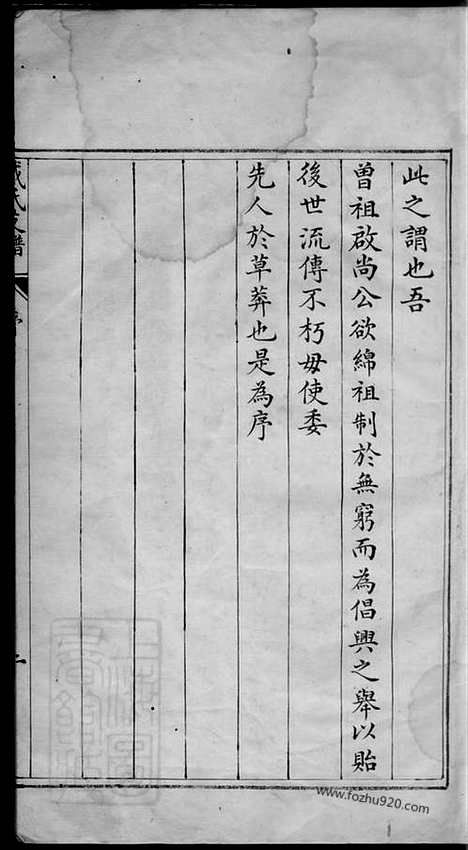 此之謂也吾
曾祖啟尚公欲綿祖制於無窮而為倡興之舉以貽
後世流傳不朽毋使委
先人於草莽也是為序
氏支譜
序
二
www.fozhu920.com